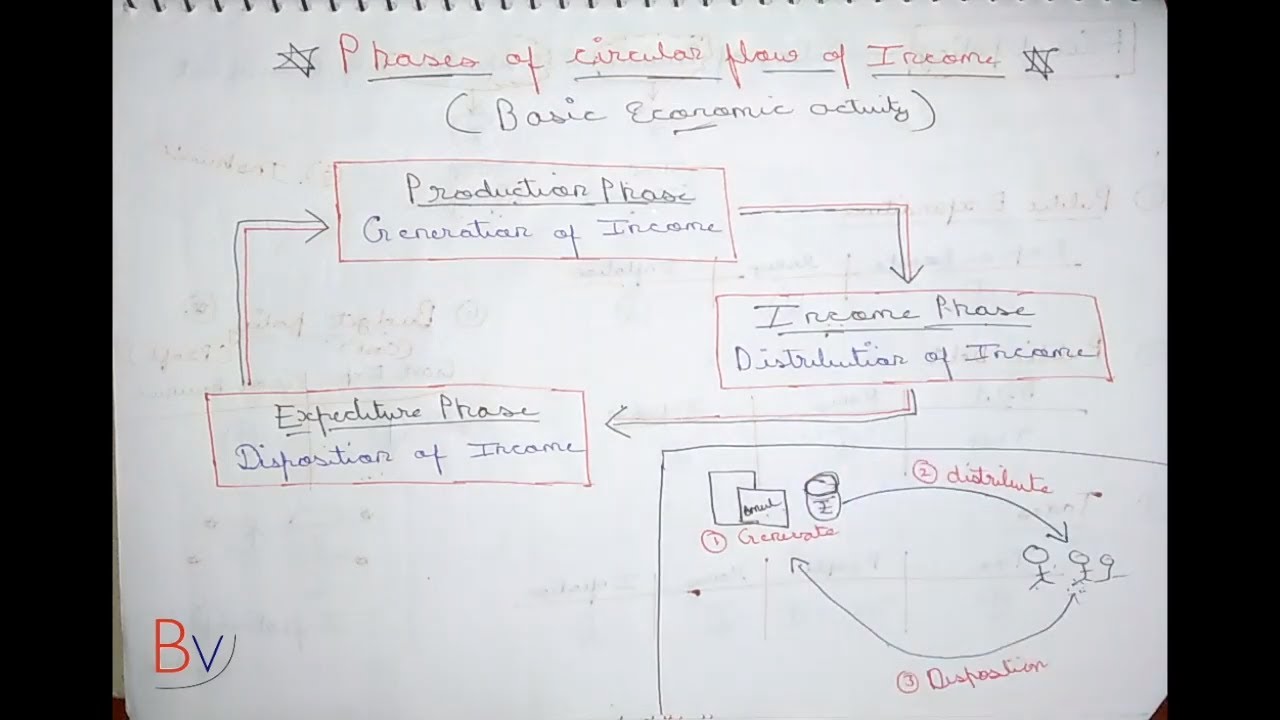 Phases of circular flow of Income
(Basic Economic activity)
Production Phase
Generation of Income
Income Phase
Distribution of Income
Expediture Phase
Disposition of Income
② distribute
① Generate
③ Disposition
BV